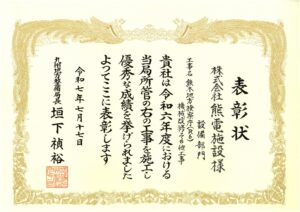 表彰状
設備部門
株式会社 熊電施設 様
工事名 熊本地方検察庁
機械設備その他工事
貴社は令和六年度における
当局所管の右の工事を施工し
優秀な成績を挙げられました
よってここに表彰します
令和七年七月十七日
九州地方整備局長 垣下禎裕